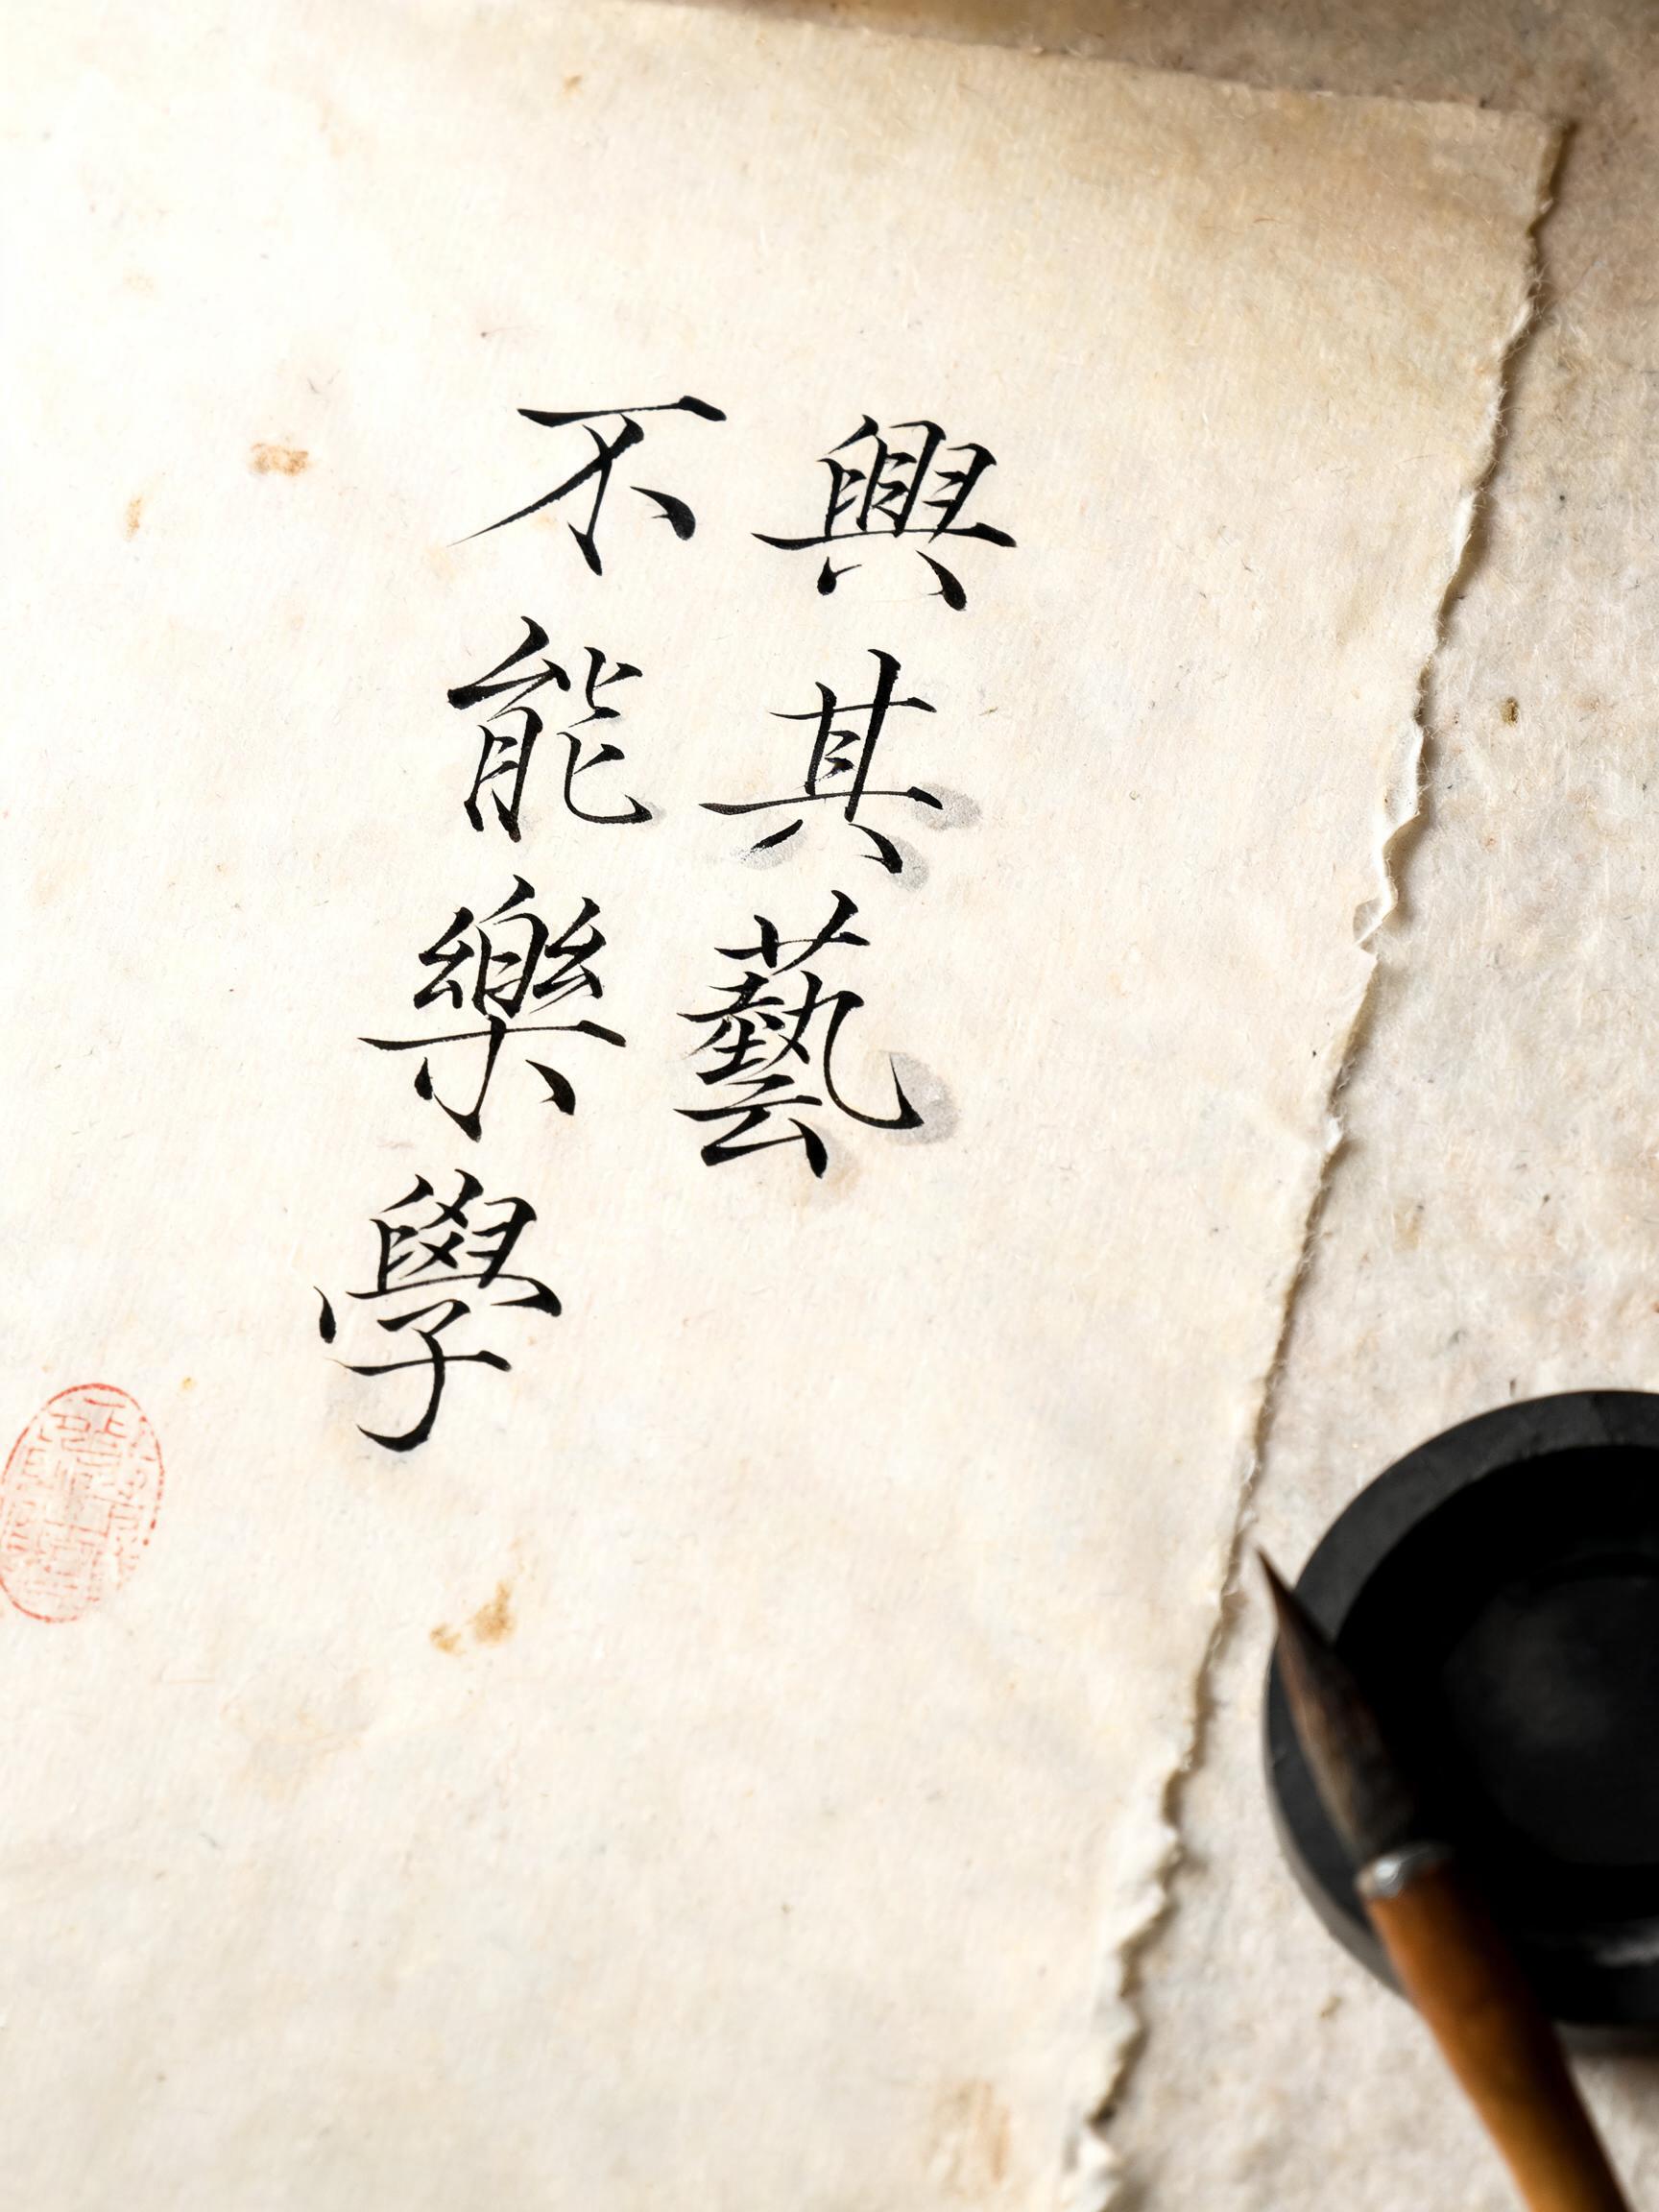 興其藝
不能樂學